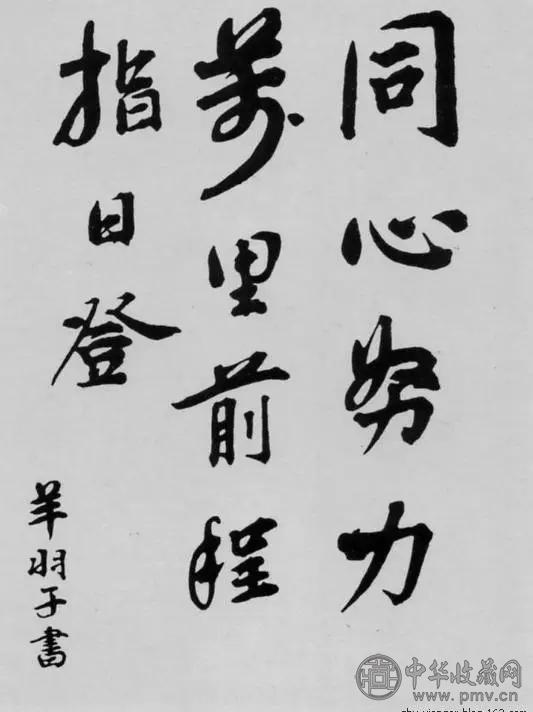 同心努力
萬里前程
指日登
羊羽子書
中华收藏网
www.pmv.cn